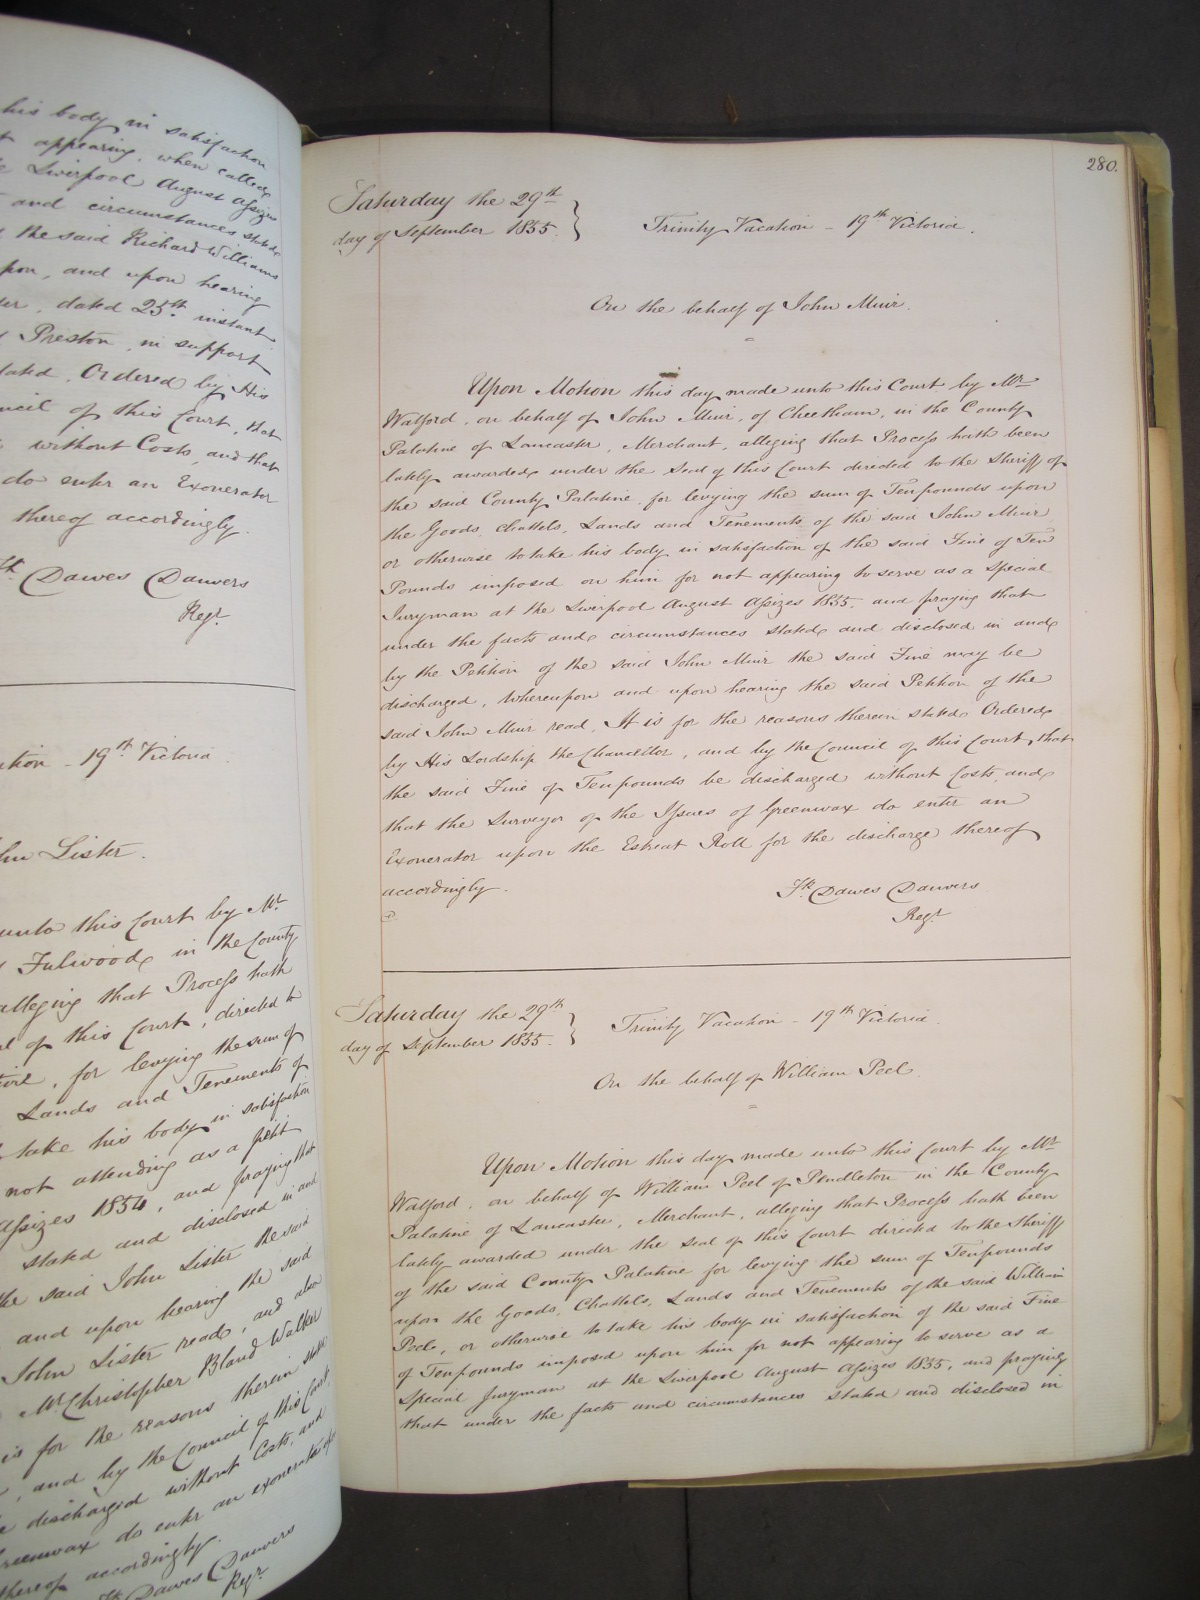 his body in satisfaction
appearing, when called
Liverpool August Assizes
and circumstances stated
the said Richard Williams
upon, and upon hearing
dated 25th instant
Preston, in support
stated, Ordered by His
Council of this Court, that
without Costs, and that
do enter an Exonerator
thereof accordingly.
Fk Dawes Danvers
Regr
19th Victoria
John Lister.
unto this Court by Mr
Fulwood, in the County
alleging that Process hath
of this Court, directed to
for levying the sum of
Lands and Tenements of
take his body in satisfaction
not attending as a petit
Assizes 1854, and praying that
stated and disclosed in and
the said John Lister the said
and upon hearing the said
John Lister read, and also
Mr Christopher Bland Walker
is for the reasons therein stated
and by the Council of this Court,
discharged without Costs, and
Greenwax do enter an exonerator
thereof accordingly.
Fk Dawes Danvers
Regr
280.
Saturday the 29th
day of September 1855. } Trinity Vacation - 19th Victoria.
On the behalf of John Muir.
Upon Motion this day made unto this Court by Mr
Walford, on behalf of John Muir, of Cheetham, in the County
Palatine of Lancaster, Merchant, alleging that Process hath been
lately awarded under the Seal of this Court directed to the Sheriff of
the said County Palatine, for levying the sum of Ten pounds upon
the Goods, Chattels, Lands and Tenements of the said John Muir
or otherwise to take his body in satisfaction of the said Fine of Ten
Pounds imposed on him for not appearing to serve as a Special
Juryman at the Liverpool August Assizes 1855. and praying that
under the facts and circumstances stated and disclosed in and
by the Petition of the said John Muir the said Fine may be
discharged, Whereupon and upon hearing the said Petition of the
said John Muir read, It is for the reasons therein stated Ordered
by His Lordship the Chancellor, and by the Council of this Court, that
the said Fine of Ten pounds be discharged without Costs, and
that the Surveyor of the Issues of Greenwax do enter an
Exonerator upon the Estreat Roll for the discharge thereof
accordingly.
Fk Dawes Danvers
Regr
Saturday the 29th
day of September 1855. } Trinity Vacation - 19th Victoria.
On the behalf of William Peel.
Upon Motion this day made unto this Court by Mr
Walford, on behalf of William Peel of Pendleton in the County
Palatine of Lancaster, Merchant, alleging that Process hath been
lately awarded under the Seal of this Court directed to the Sheriff
of the said County Palatine for levying the sum of Ten pounds
upon the Goods, Chattels, Lands and Tenements of the said William
Peel, or otherwise to take his body in satisfaction of the said Fine
of Ten pounds imposed upon him for not appearing to serve as a
Special Juryman at the Liverpool August Assizes 1855, and praying
that under the facts and circumstances stated and disclosed in